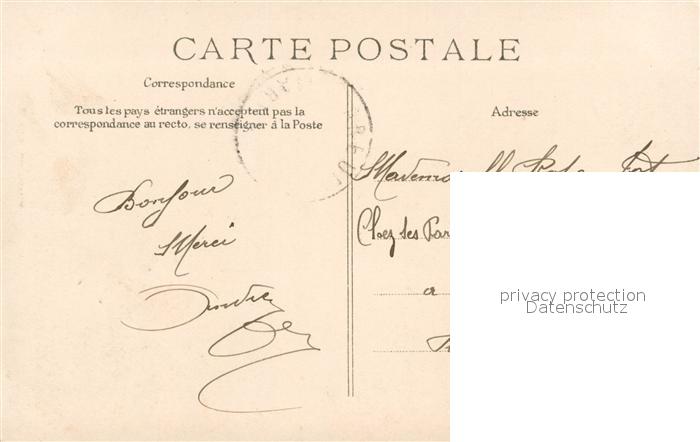 CARTE POSTALE
Correspondance
Tous les pays étrangers n'acceptent pas la
correspondance au recto, se renseigner à la Poste
Adresse
Bonjour
Merci
Chez ses Par
a
privacy protection
Datenschutz